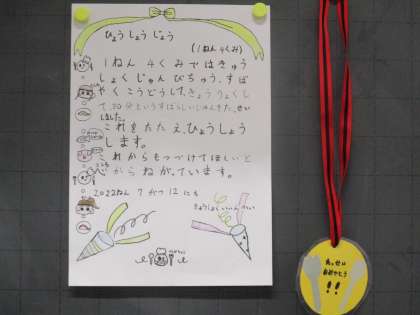 ひょうしょうじょう
(1ねん4くみ)
1ねん4くみではきゅう
しょくじゅんびちゅう、すば
やくこうどうして、きょうりょくし
て、20分というすばらしいじゅんびを、せい
しました。
これをたたえ、ひょうしょう
します。
これからもつづけてほしいと
こころ
からねがっています。
2022ねん7がつ12にち
きゅうしょくいいんかい
たっせい
おめでとう
!!